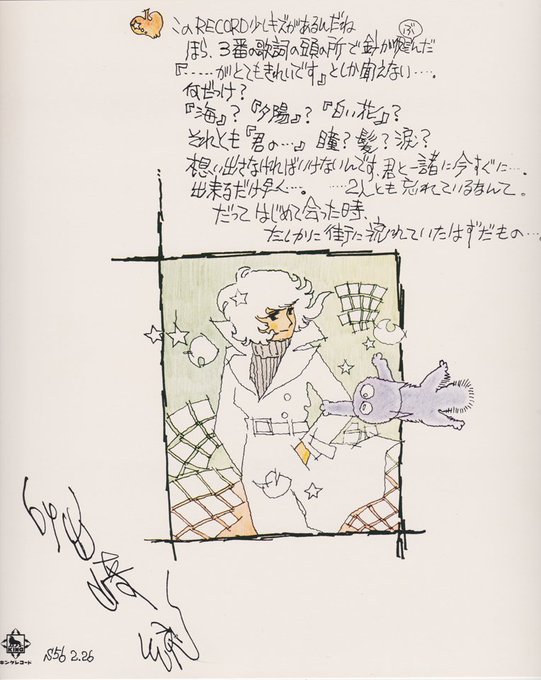 このRECORD少しキズがあるんだね
ほら、3番の歌詞の頭の所で針が飛ぶんだ
『‥‥‥がとてもきれいです』としか聞えない‥‥。
何だっけ?
『海』? 『夕陽』? 『白い花』?
それとも『君の…』 瞳? 髪? 涙?
想い出さなければいけないんです、君と一諸に今すぐに…。
出来るだけ早く…。 ‥‥‥2人とも忘れているなんて。
だって はじめて会った時、
たしかに街に流れていたはずだもの…。
KING
キングレコード
S56 2.26